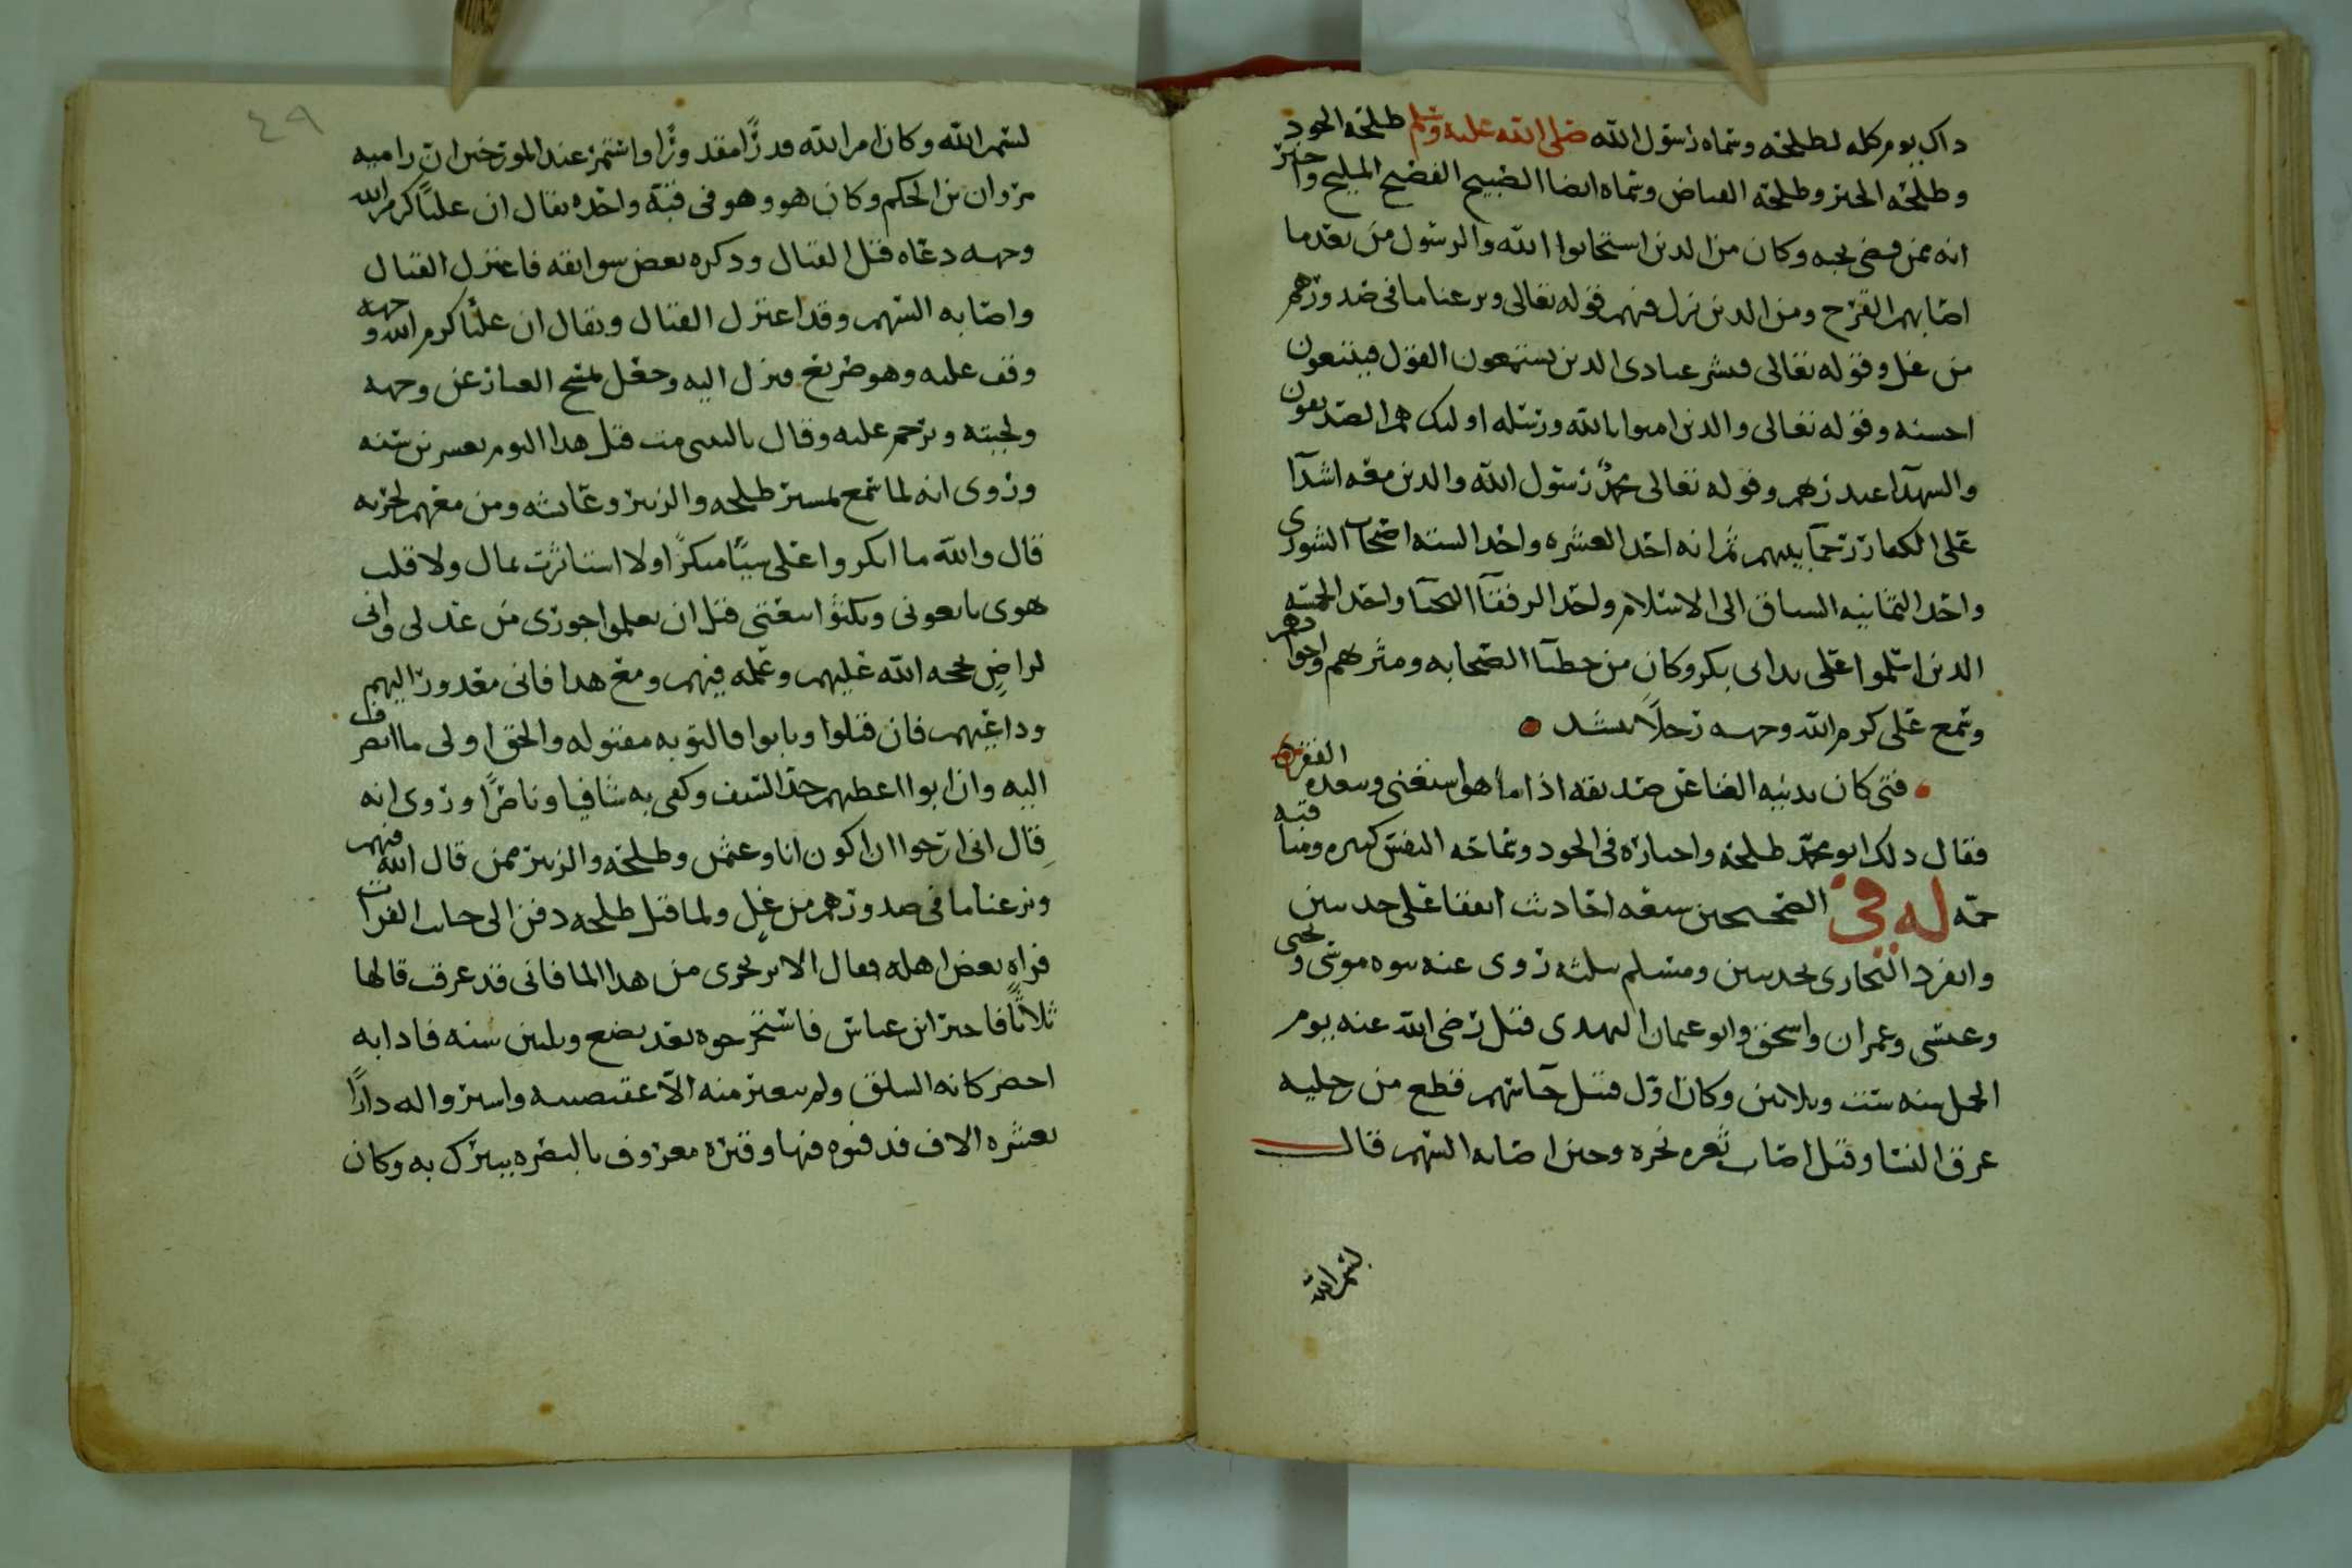 داك يوم كله لطلحه وسماه رسول الله صلى الله عليه وسلم طلحه الجود
وطلحه الخير وطلحه الفياض وسماه ايضا الصبيح الفصيح المليح واخبر
انه ممن قضى نحبه وكان من الدين استجابوا لله والرسول من بعد ما
اصابهم القرح ومن الدين نزل فيهم قوله تعالى ونزعنا ما في صدورهم
من غل وقوله تعالى فبشر عبادى الدين يستمعون القول فيتبعون
احسنه وقوله تعالى والدين امنوا بالله ورسله اوليك هم الصديقون
والشهدآ عند ربهم وقوله تعالى محمد رسول الله والدين معه اشدآ
على الكفار رحمآ بينهم ثم انه احد العشره واحد السته اصحاب الشورى
واحد الثمانيه السباق الى الاسلام واحد الرفقآ النجبا واحد الخمسه
الدين اسلموا على يد ابى بكر وكان من خطبآ الصحابه ومثريهم واجوادهم
وسمع على كرم الله وجهه رجلاً ينشد
فتى كان يدنيه الغنا عن صديقه اذا ما هو استغنى ويبعده الفقر
فقال دلك ابو محمد طلحه واخباره في الجود وسماحه النفس كثيره ومناقبه
جمه له في الصحيحين سبعه احاديث اتفقا على حديثين
وانفرد البخارى بحديثين ومسلم بثلثه روى عنه بنوه موسى ويحيى
وعيسى وعمران واسحق وابو عثمان النهدى قتل رضى الله عنه يوم
الجمل سنه ست وثلاثين وكان اول قتيل جآ سهم فقطع من رجليه
عرق النسا وقيل اصاب ثغره نحره وحين اصابه السهم قال
بسم الله
٤٩
بسم الله وكان امر الله قدرًا مقدورًا واشتهر عند المورخين ان راميه
مروان بن الحكم وكان هو وهو في فئه واحده يقال ان عليًا كرم الله
وجهه دعاه قبل القتال ودكره بعض سوابقه فاعتزل القتال
واصابه السهم وقد اعتزل القتال ويقال ان عليًا كرم الله وجهه
وقف عليه وهو صريع فنزل اليه وجعل يمسح الغبار عن وجهه
ولحيته وترحم عليه وقال ياليتنى مت قبل هدا اليوم بعشرين سنه
وروى انه لما سمع بمسير طلحه والزبير وعايشه ومن معهم لحربه
قال والله ما انكروا على شيًا منكرًا ولا استاثرت بمال ولا قلب
هوى بايعونى ونكثوا بيعتى قبل ان يعلموا جورى من عدلى وانى
لراضٍ بحجه الله عليهم وعمله فيهم ومع هدا فانى معدور اليهم
وداعيهم فان قبلوا وتابوا فالتوبه مقبوله والحق اولى ما انصرف
اليه وان ابوا اعطيهم حد السيف وكفى به شافيا وناصرًا وروى انه
قال انى ارجوا ان اكون انا وعثمن وطلحه والزبير ممن قال الله فيهم
ونزعنا ما في صدورهم من غلٍ ولما قتل طلحه دفن الى جانب الفرات
فراه بعض اهله فقال الا تريحونى من هدا الما فانى قد غرقت قالها
ثلاثًا فاخبر ابن عباس فاستخرجوه بعد بضع وثلثين سنه فادا به
اخضر كانه السلق ولم يتغير منه الا عقيصته واشتروا له دارًا
بعشره الاف فدفنوه فيها وقبره معروف بالبصره يتبرك به وكان